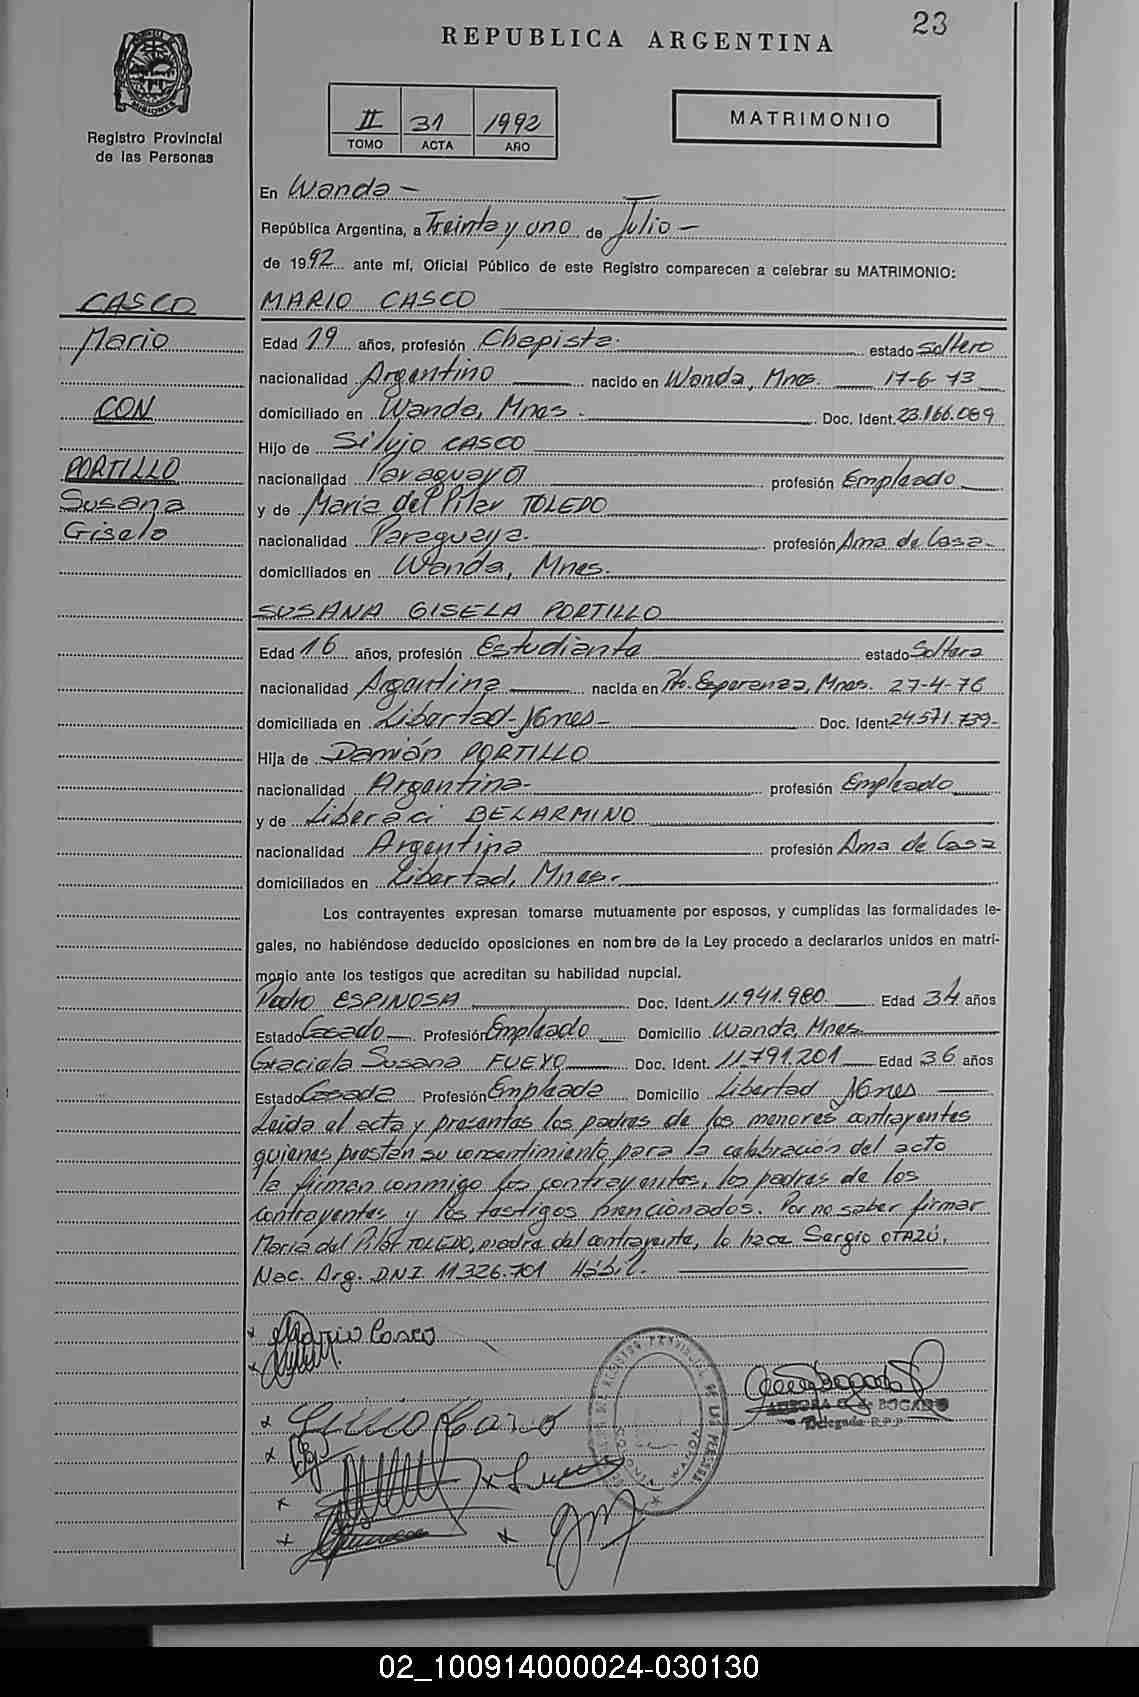 23
REPUBLICA ARGENTINA
MISIONES
Registro Provincial
de las Personas
II 31 1992
TOMO ACTA AÑO
MATRIMONIO
En Wanda -
República Argentina, a Treinta y uno de Julio -
de 1992 ante mí, Oficial Público de este Registro comparecen a celebrar su MATRIMONIO:
CASCO
Mario
CON
PORTILLO
Susana
Gisela
MARIO CASCO
Edad 19 años, profesión Chapista. estado Soltero
nacionalidad Argentino nacido en Wanda, Mnes. 17-6-73
domiciliado en Wanda, Mnes. Doc. Ident. 23.166.089
Hijo de Silvio CASCO
nacionalidad Paraguaya profesión Empleado
y de María del Pilar TOLEDO
nacionalidad Paraguaya. profesión Ama de Casa -
domiciliados en Wanda, Mnes.
SUSANA GISELA PORTILLO
Edad 16 años, profesión Estudiante estado Soltera
nacionalidad Argentina nacida en Pto. Esperanza, Mnes. 27-4-76
domiciliada en Libertad - Mnes - Doc. Ident 24.571.739-
Hija de Damián PORTILLO
nacionalidad Argentina - profesión Empleado
y de Liberaci BELARMINO
nacionalidad Argentina profesión Ama de Casa
domiciliados en Libertad, Mnes.
Los contrayentes expresan tomarse mutuamente por esposos, y cumplidas las formalidades le-
gales, no habiéndose deducido oposiciones en nombre de la Ley procedo a declararlos unidos en matri-
monio ante los testigos que acreditan su habilidad nupcial.
Pedro ESPINOSA Doc. Ident. 11.941.980 Edad 34 años
Estado Casado Profesión Empleado Domicilio Wanda, Mnes.
Graciela Susana FUEYO Doc. Ident. 11.791.201 Edad 36 años
Estado Casada Profesión Empleada Domicilio Libertad Mnes
Leída el acta y presentes los padres de los menores contrayentes
quienes prestan su consentimiento para la celebración del acto
la firman conmigo los contrayentes, los padres de los
contrayentes y los testigos mencionados. Por no saber firmar
María del Pilar TOLEDO, madre del contrayente, lo hace Sergio OTAZÚ,
Nac. Arg. DNI 11326.701 Hábil.
x Mario Casco
x
x Silvio Casco
x
x
x
x
x
de BOGADO
Delegada R.P.P.
WANDA
02_100914000024-030130